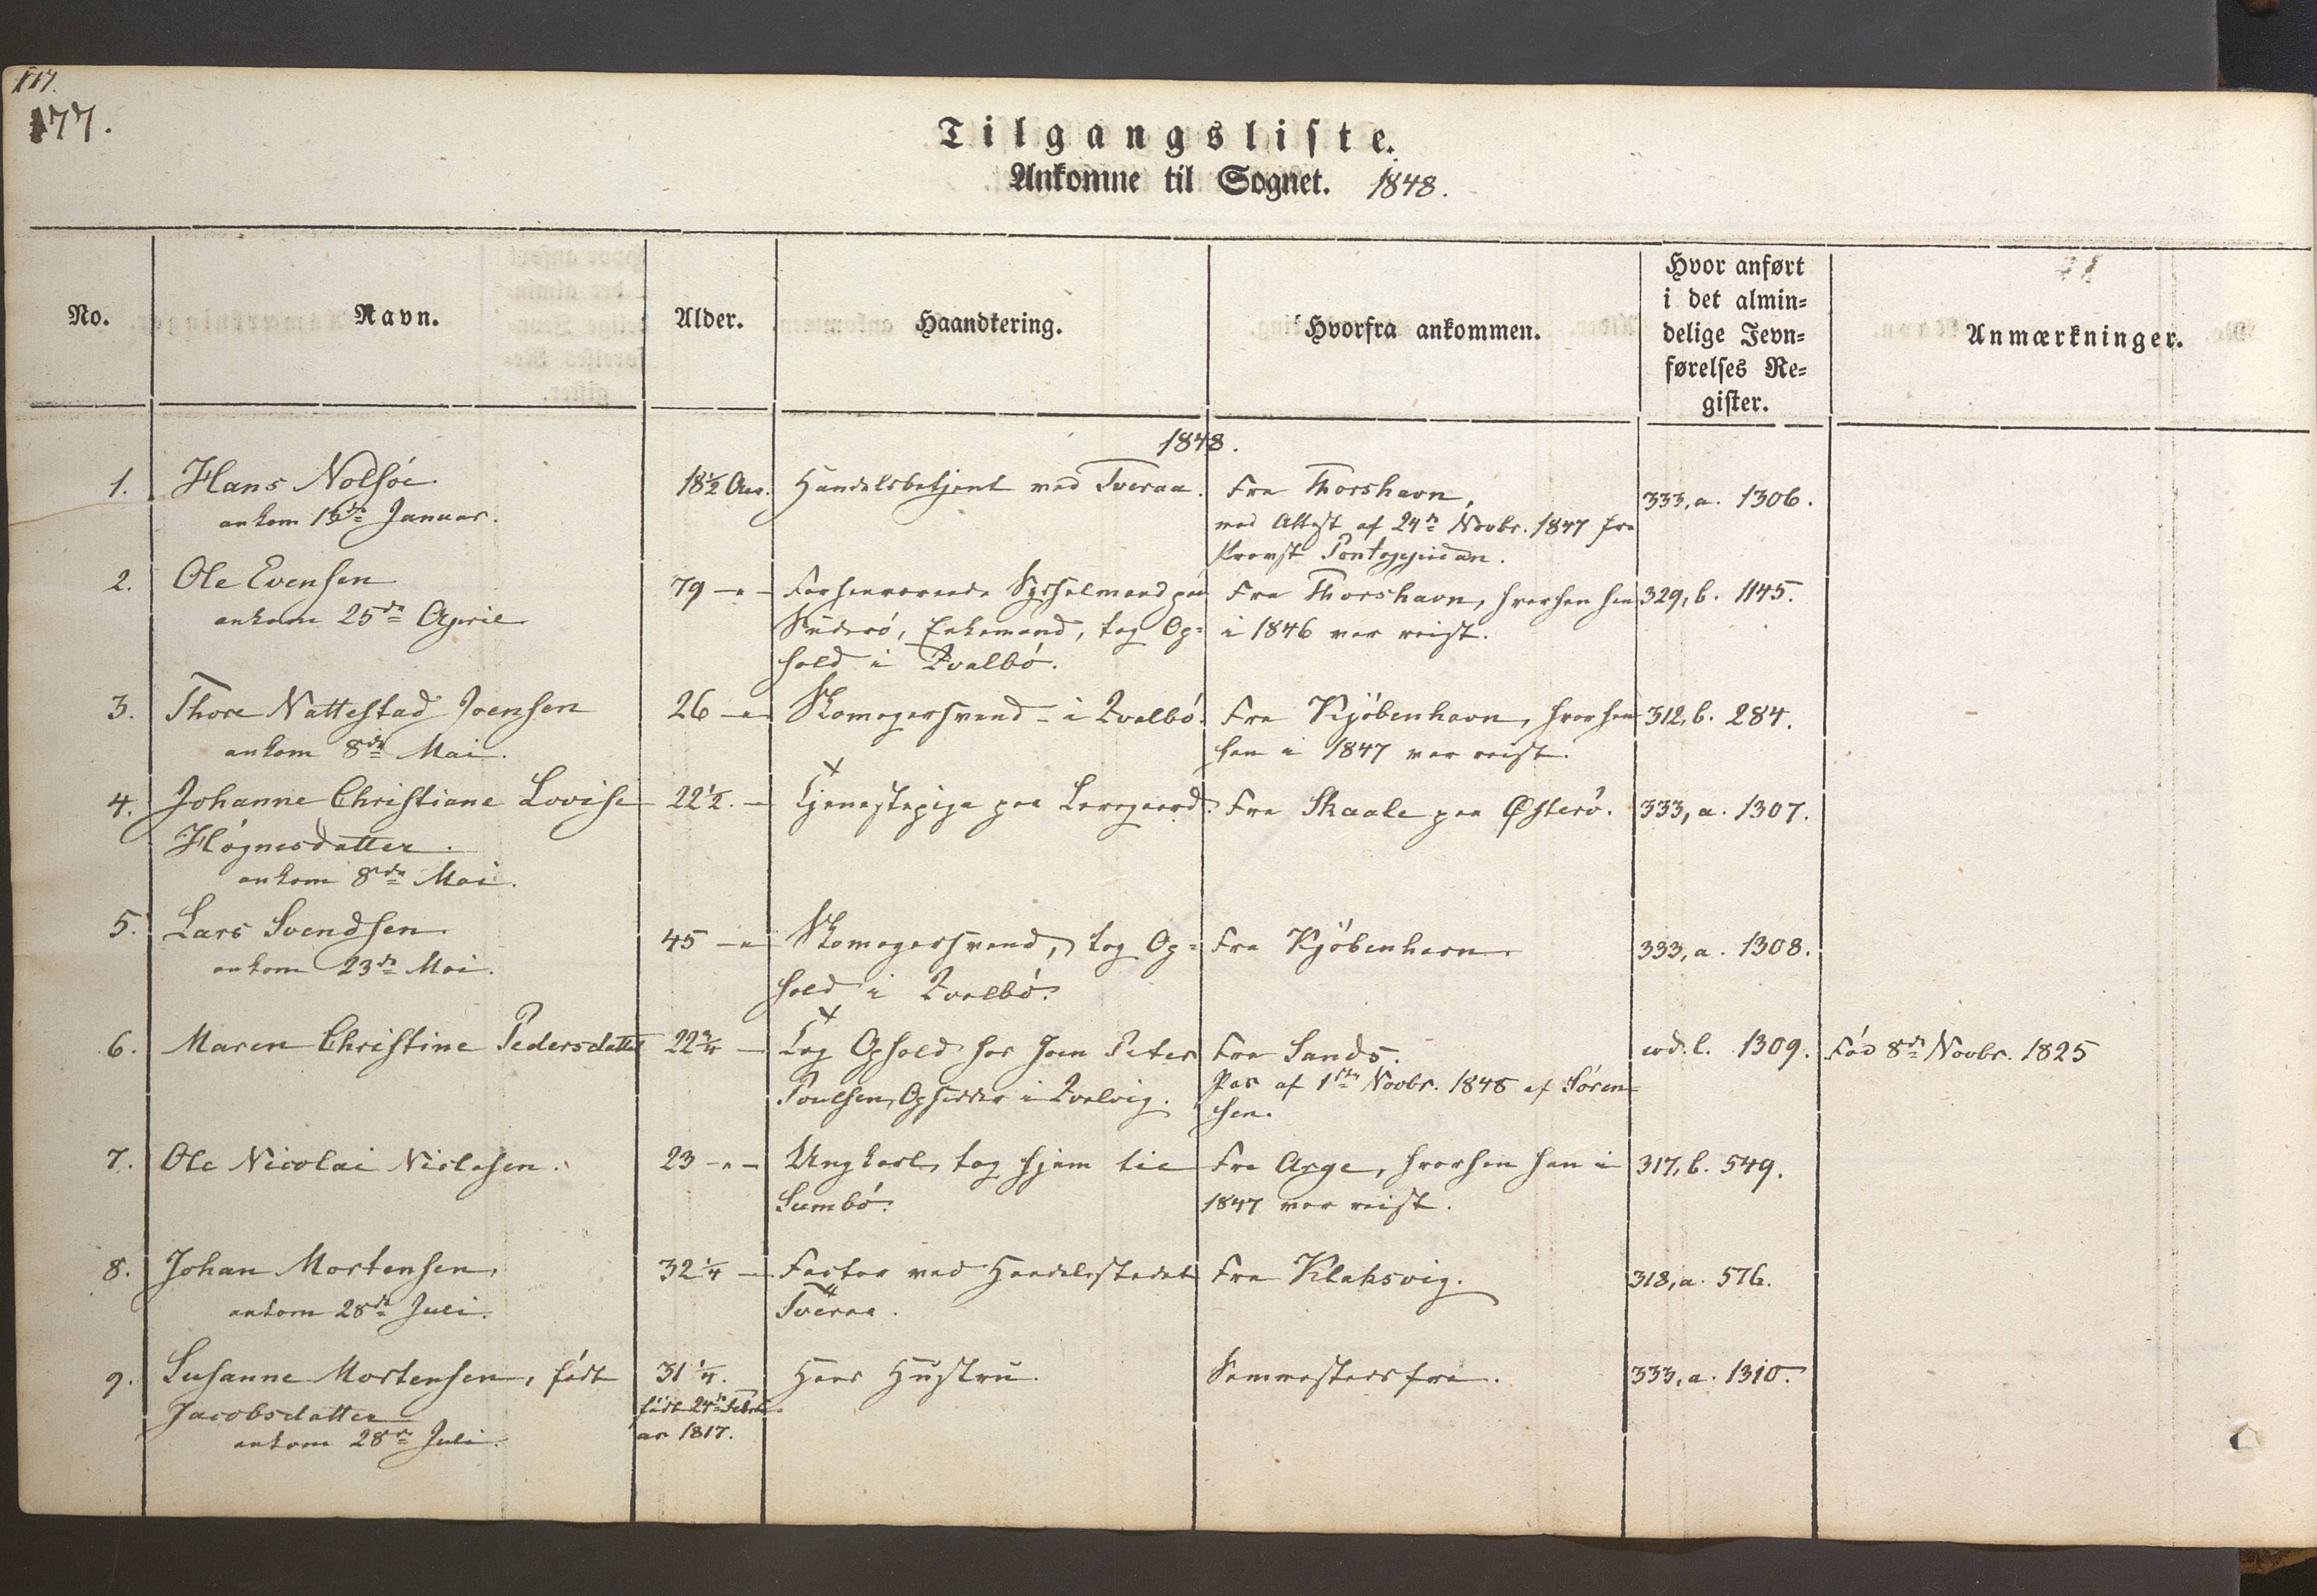 117.
177.
Tilgangsliste.
Ankomne til Sognet. 1848.
No. Navn. Alder. Haandtering. Hvorfra ankommen. Hvor anført i det almin= delige Jevn= førelses Re= gister. Anmærkninger.
1848.
1. Hans Nolsöe 18½ Aar. Handelsbetjent ved Tveraa. Fra Thorshavn, 333, a. 1306.
ankom 13de Januar. med Attest af 24de Novbr. 1847 fra
Provst Pontoppidan.
2. Ole Evensen 79 -"- Forhenværende Sysselmand paa Fra Thorshavn, hvorhen han 329, b. 1145.
ankom 25de April Suderö, Enkemand, tog Op= i 1846 var reist.
hold i Qvalbö.
3. Thore Nattestad Joensen 26 -"- Skomagersvend - i Qvalbö. Fra Kjöbenhavn, hvorhen 312, b. 284.
ankom 8de Mai. han i 1847 var reist.
4. Johanne Christiane Lovise 22½. - Tjenestepige paa Fra Skaale paa Österö. 333, a. 1307.
Högnesdatter.
ankom 8de Mai.
5. Lars Svendsen 45 -"- Skomagersvend, tog Op= Fra Kjöbenhavn 333, a. 1308.
ankom 23de Mai. hold i Qvalbö.
6. Maren Christine Pedersdatter 22¾ - Tog Ophold hos Joen Peter Fra Sands. eod. l. 1309. Föd 8de Novbr. 1825
Poulsen, Opsidder i Qvalvig. Pas af 1ste Novbr. 1848 af Sören=
sen.
7. Ole Nicolai Nielsen. 23 -"- Ungkarl, tog hjem til Fra Arge, hvorhen han i 317, b. 549.
Sumbö. 1847 var reist.
8. Johan Mortensen, 32¼ - Factor ved Handelsstedet Fra Klaksvig. 318, a. 576.
ankom 28de Juli. Tveraa.
9. Susanne Mortensen, födt 31¼. Hans Hustru. Sammesteds fra. 333, a. 1310.
Jacobsdatter födt 24de Febru=
ankom 28de Juli. ar 1817.